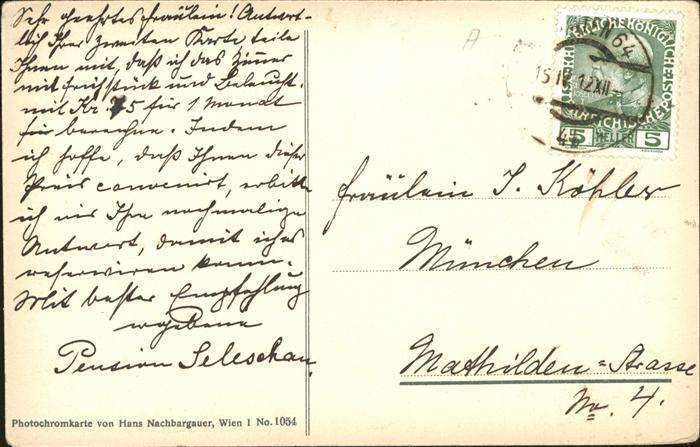 Sehr geehrtes Fräulein! Antwort-
lich Ihrer zweiten Karte teile
Ihnen mit, daß ich das Zimmer
mit Frühstück und Beleucht.
mit Kr. 75 für 1 Monat
für berechne. Indem
ich hoffe, daß Ihnen dieser
Preis convenirt, erbitte
ich mir Ihre nochmalige
Antwort, damit ich es
reserviren kann.
Mit bester Empfehlung
ergebene
Pension Seleschan.
Photochromkarte von Hans Nachbargauer, Wien I No. 1054
N 64
15 IV 12 XII
5 HELLER 5
Fräulein I. Köhler
München
Mathilden=Strasse
No. 4.